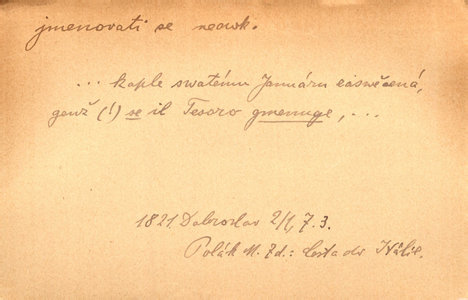 jmenovati se neowk.
... kaple swatému Januáru zaswěcená,
genž (!) se il Tesoro gmenuge, ...
1821 Dobroslav 2/1, 7. 3.
Polák M. Zd.: Cesta do Itálie.